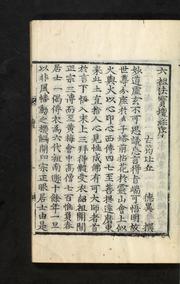 六祖法寶壇經序
古筠比丘 德異 撰
妙道虛玄不可思議忘言得旨端可悟明故
世尊分座於多子塔前拈花於靈山會上似
火與火以心印心西傳四七至菩提達磨東
來此土直指人心見性成佛有可大師者首
於言下悟入末上三拜得髓受衣紹祖開闡
正宗三傳而至黃梅會中高僧七百惟負舂
居士一偈傳衣為六代祖南遯十餘年一旦
以非風旛動之機觸開印宗正眼居士由是